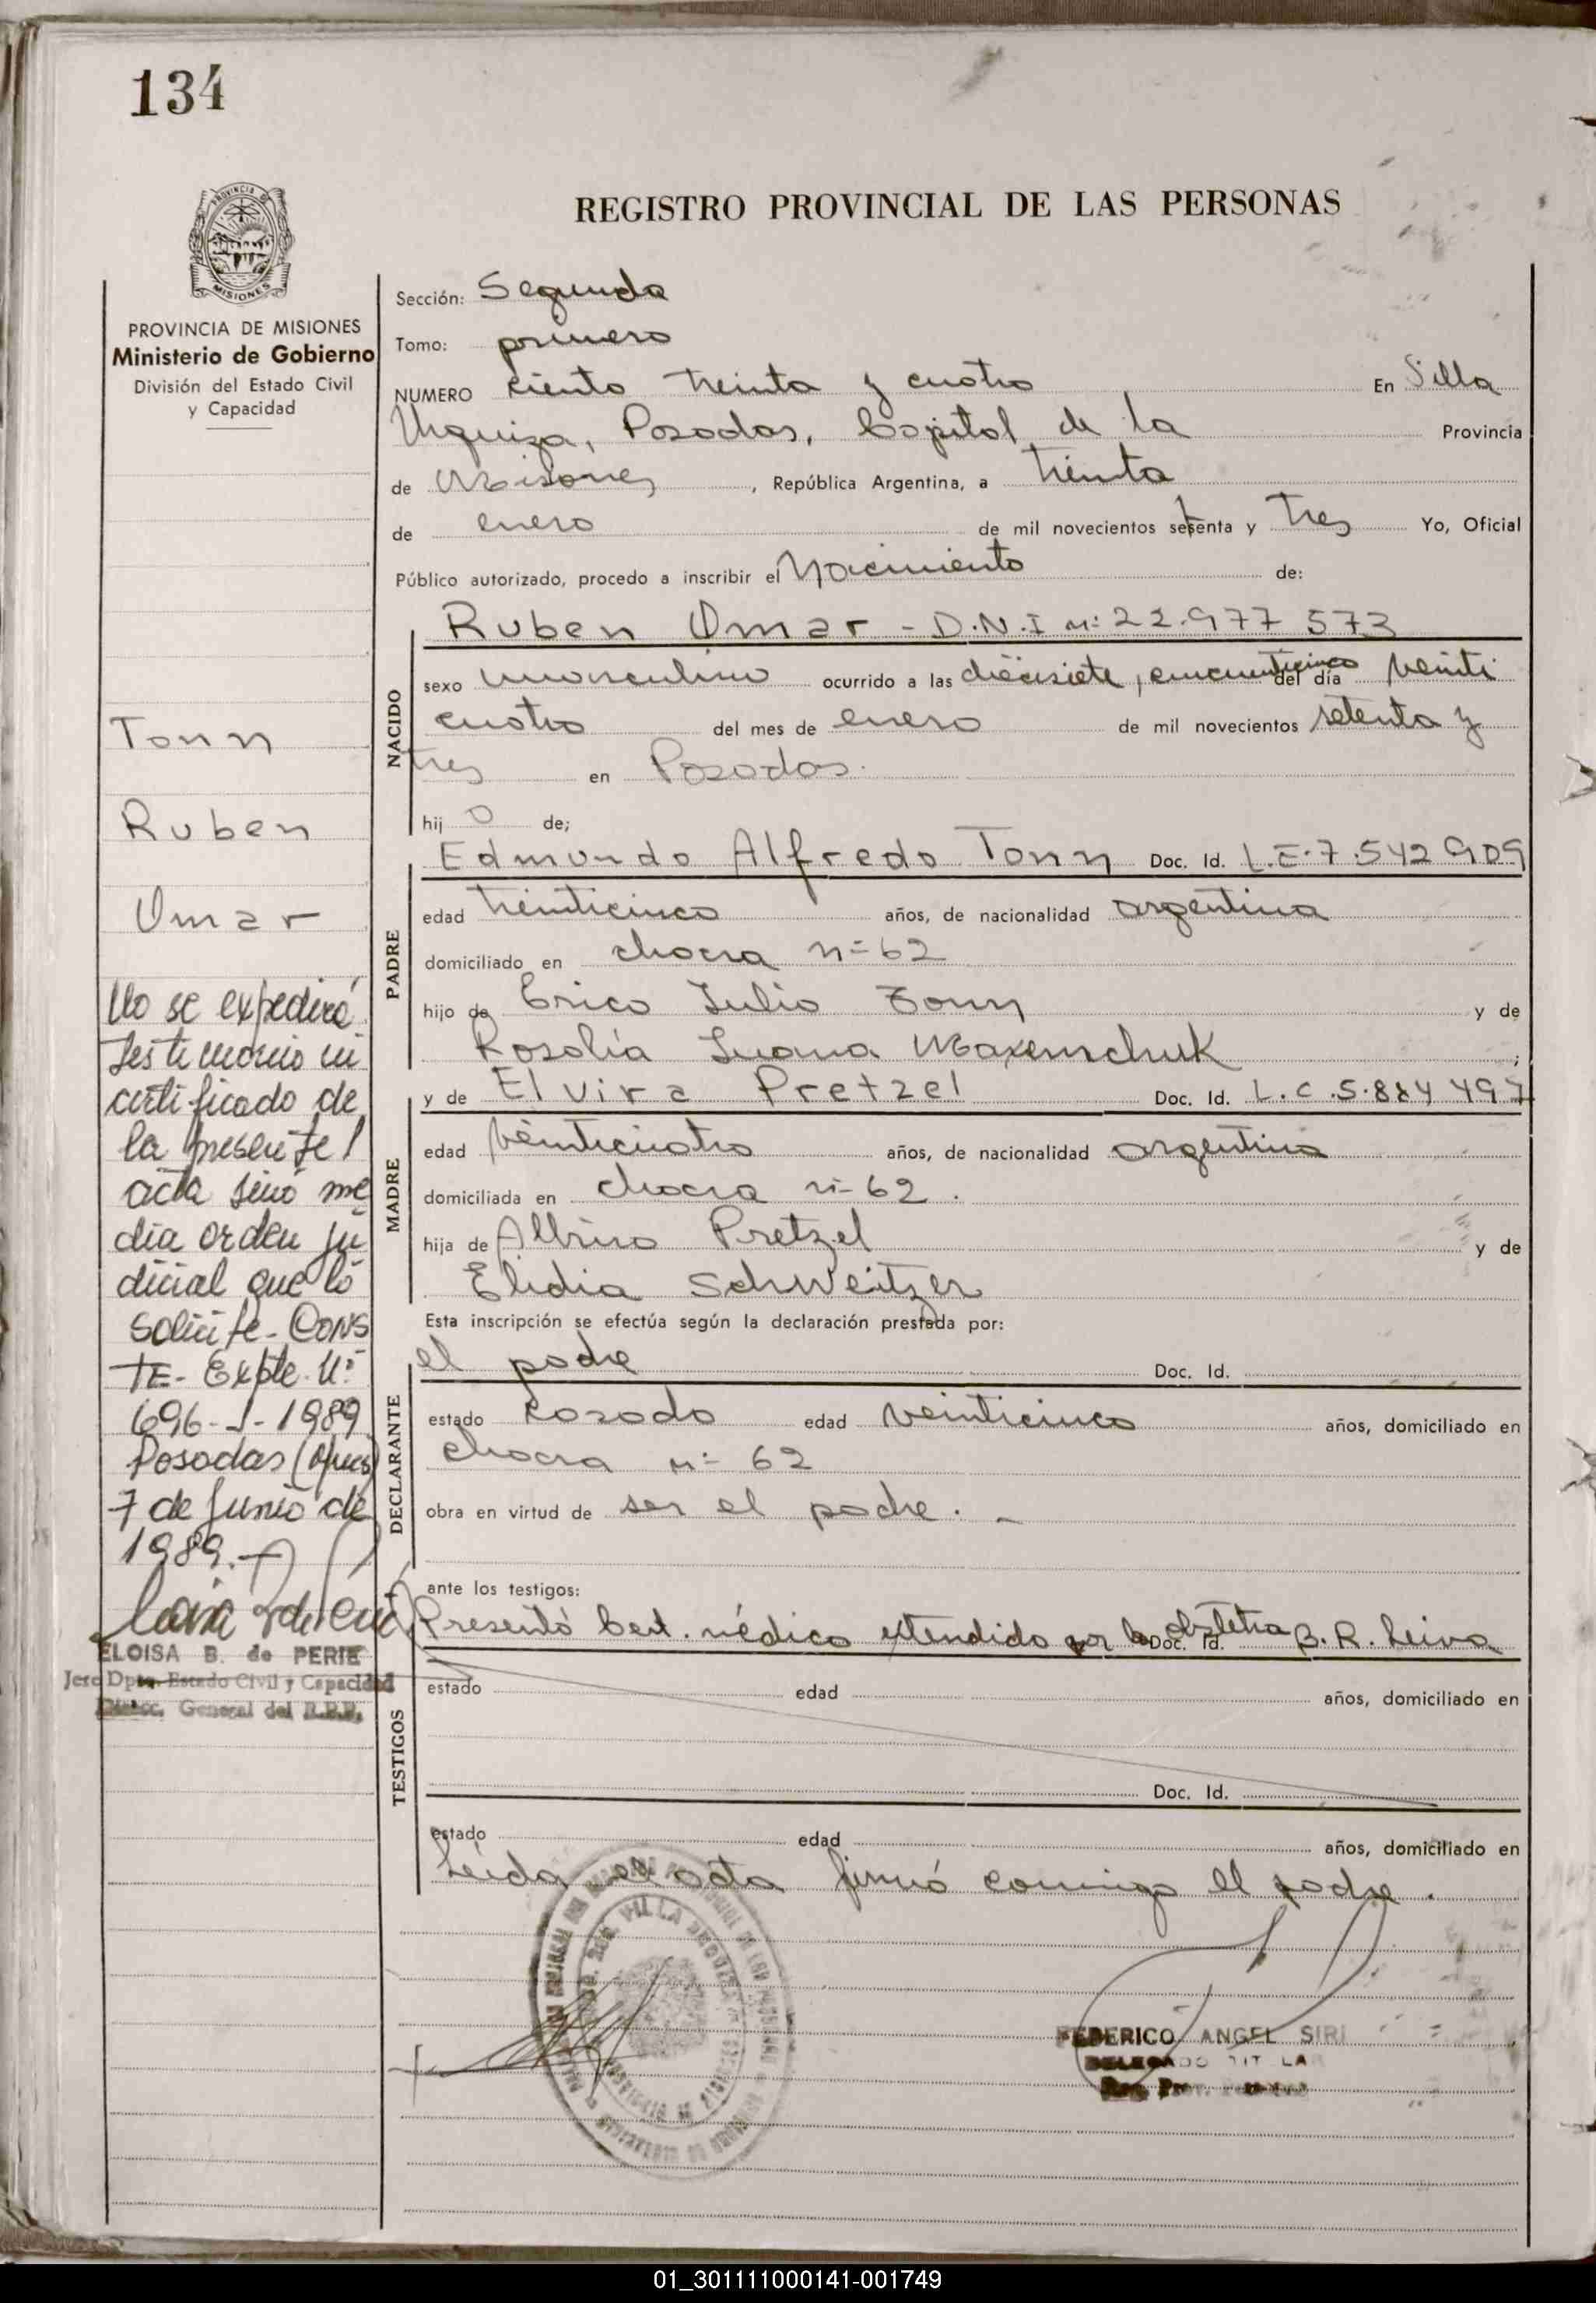 134
PROVINCIA DE
MISIONES
REGISTRO PROVINCIAL DE LAS PERSONAS
PROVINCIA DE MISIONES
Ministerio de Gobierno
División del Estado Civil
y Capacidad
Tonn
Ruben
Omar
No se expedirá
testimonio ni
certificado de
la presente
acta sinó me
dia orden ju
dicial que lo
solicite - CONS
TE - Expte. Nº
696-J-1989
Posadas (Mnes)
7 de Junio de
1989.-
ELOISA B. de PERIE
Jefe Dpto. Estado Civil y Capacidad
Direcc. General del R.P.P.
Sección: Segunda
Tomo: primero
NUMERO ciento treinta y cuatro En Villa
Urquiza, Posadas, Capital de la Provincia
de Misiones, República Argentina, a treinta
de enero de mil novecientos setenta y tres Yo, Oficial
Público autorizado, procedo a inscribir el Nacimiento de:
NACIDO
Ruben Omar - D.N.I nº: 22.977 573
sexo masculino ocurrido a las diecisiete, cincuenticinco del día veinti
cuatro del mes de enero de mil novecientos setenta y
tres en Posadas.
hij o de;
PADRE
Edmundo Alfredo Tonn Doc. Id. L.E.7.542 909
edad treinticinco años, de nacionalidad argentina
domiciliado en chacra nº 62
hijo de Erico Julio Tonn y de
Rosalía Juana Maxemchuk ;
MADRE
y de Elvira Pretzel Doc. Id. L.C.5.884 497
edad veinticuatro años, de nacionalidad argentina
domiciliada en chacra nº 62.
hija de Albino Pretzel y de
Elidia Schweitzer
Esta inscripción se efectúa según la declaración prestada por:
DECLARANTE
el padre Doc. Id.
estado casado edad veinticinco años, domiciliado en
chacra nº 62
obra en virtud de ser el padre. -
ante los testigos:
TESTIGOS
Presentó Cert. médico extendido por la obstetra B. R. Leiva Doc. Id.
estado edad años, domiciliado en
Doc. Id.
estado edad años, domiciliado en
Leída el acta firmó conmigo el padre.
VILLA URQUIZA
FEDERICO ANGEL SIRI
DELEGADO TITULAR
01_301111000141-001749